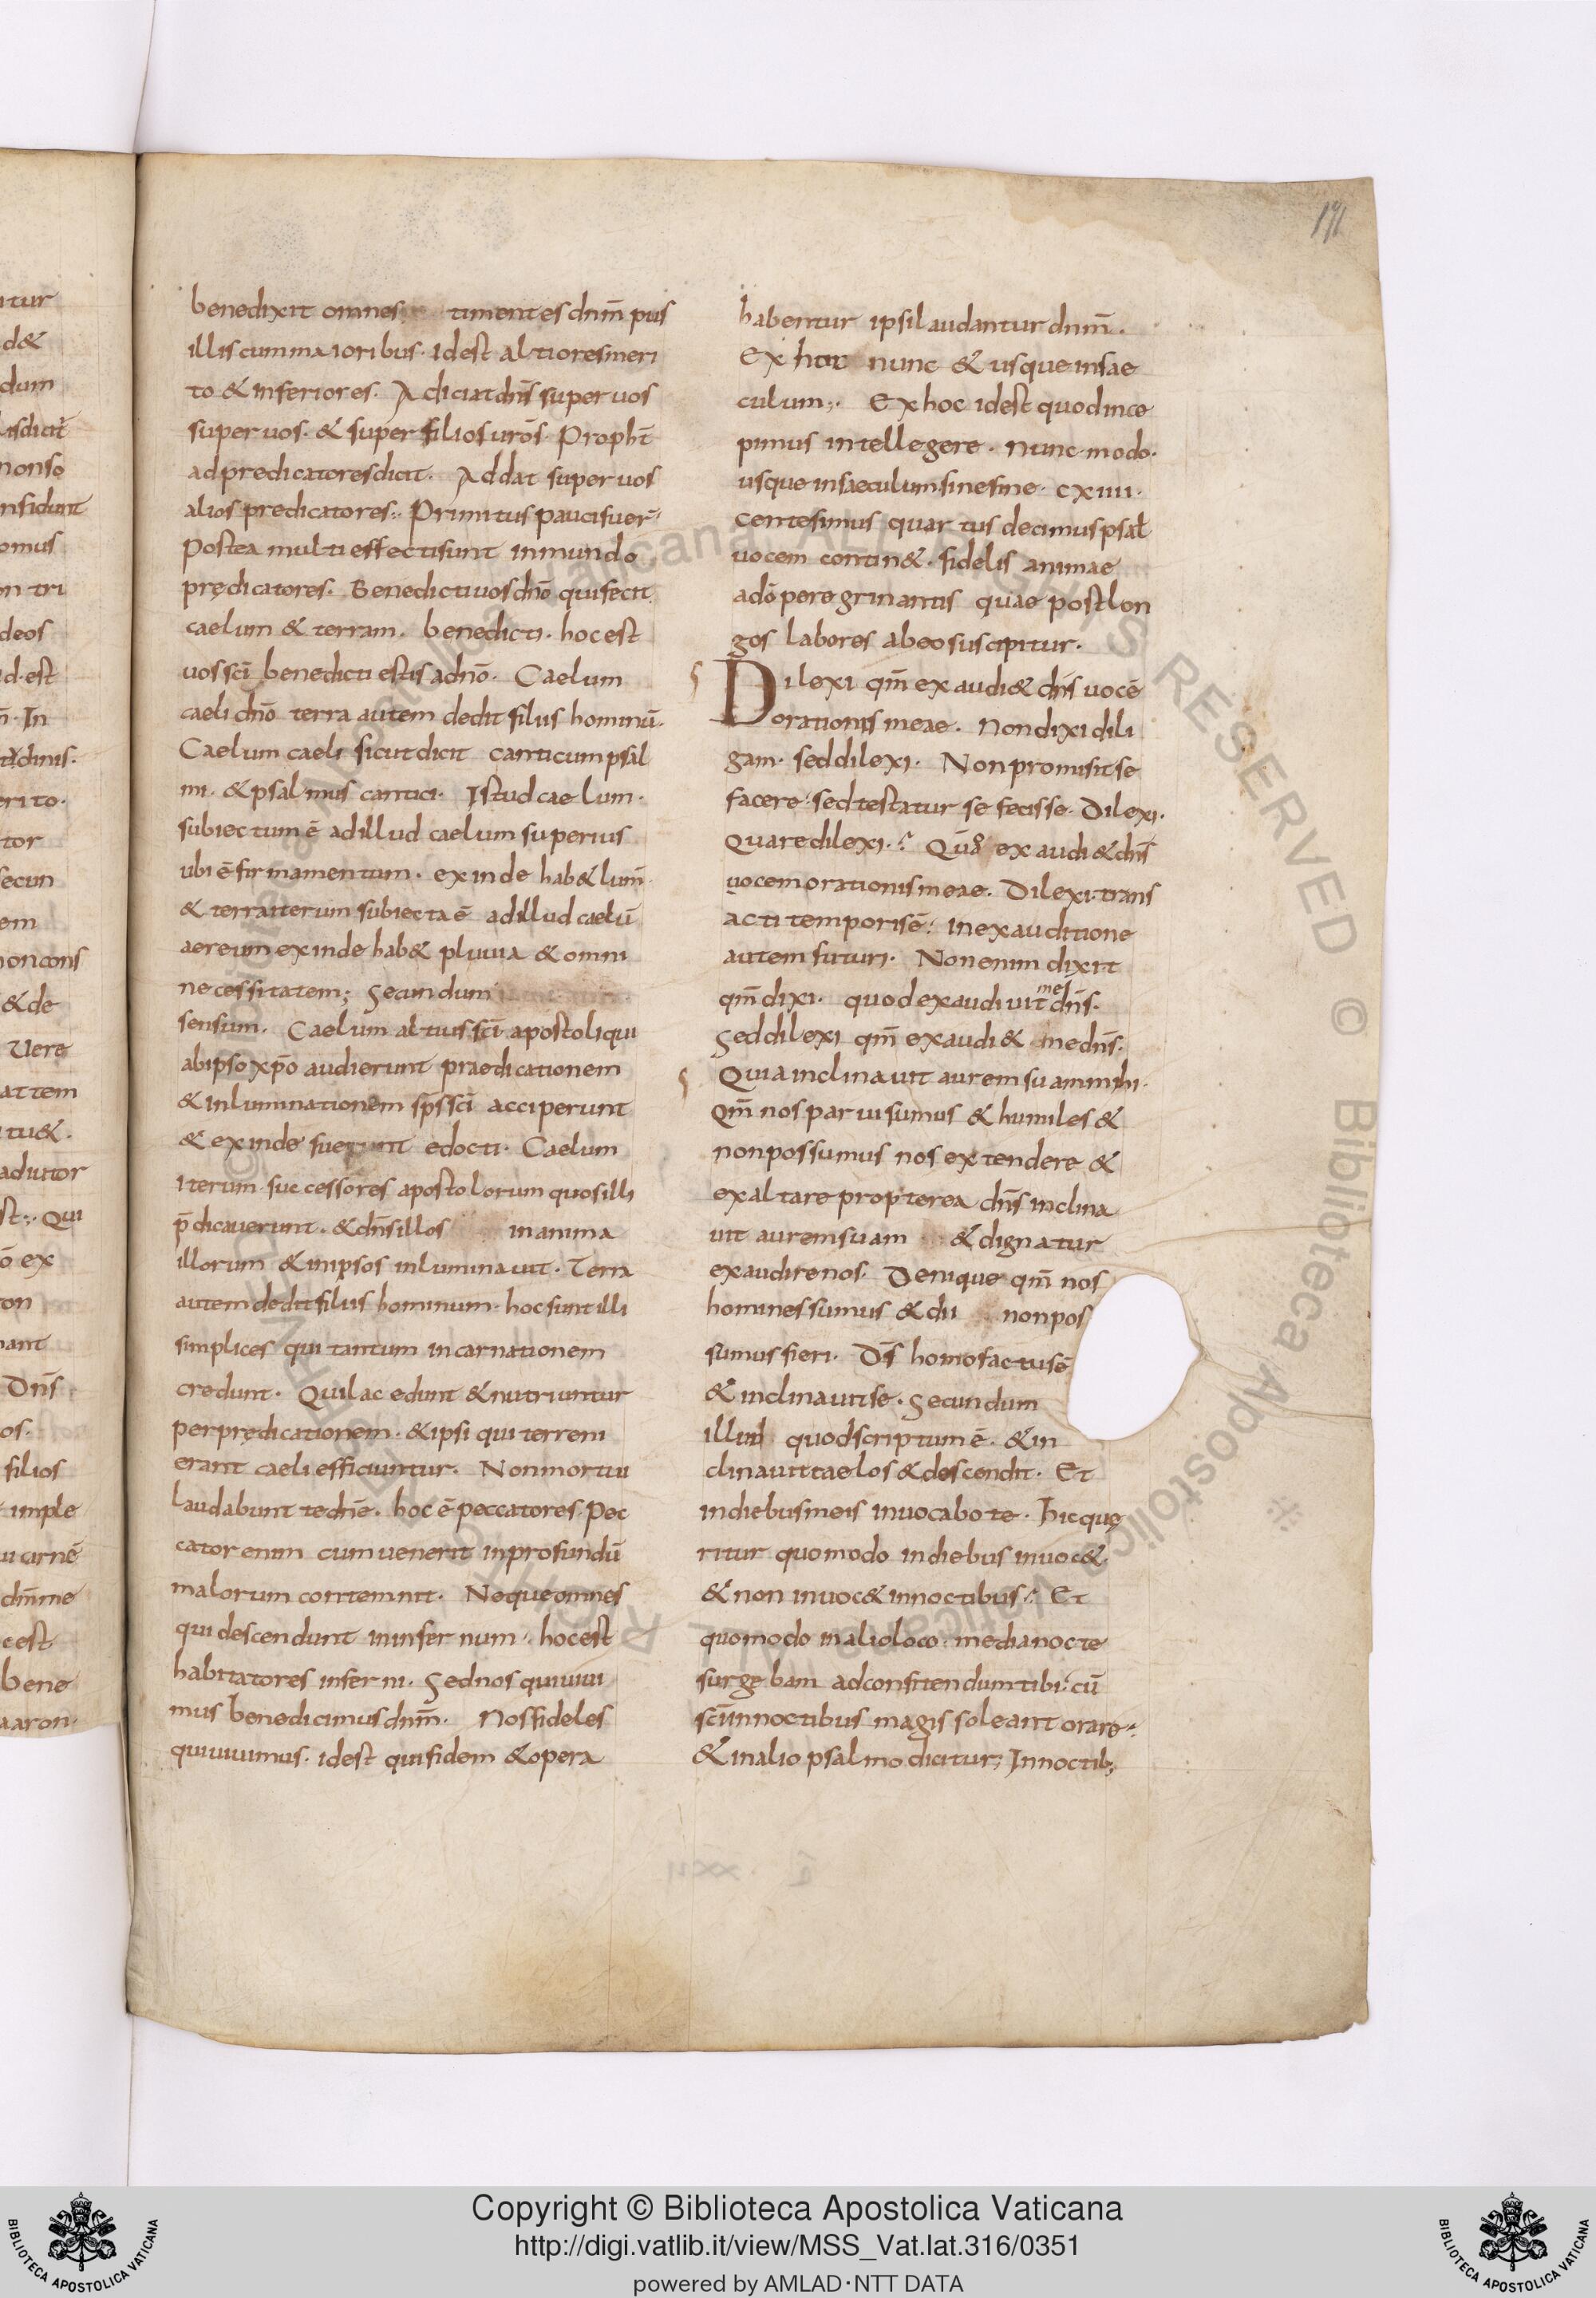 191
benedixit omnes timentes dnm̄ pus
illis cum maioribus · idest altiores meri
to & inferiores · Adiciat dn̄s super uos
super uos · & super filios uro͞s · Proph̄t
ad predicatores dicit · Addat super uos
alios predicatores :· Primitus pauci fuer̄
postea multi effecti sunt in mundo
prędicatores · Benedicti uos dn̄o qui fecit
caelum & terram · benedicti · hoc est
uos sc̄i benedicti estis a dn̄o · Caelum
caeli dn̄o terra autem dedit filiis hominū ·
Caelum caeli sicut dicit canticum psal
mi · & psalmus cantici · Istud caelum ·
subiectum ē ad illud caelum superius
ubi ē firmamentum · exinde hab& lum̄
& terra iterum subiecta ē ad illud caelū
aereum exinde hab& pluuia & omni
necessitatem ; Secundum
sensum · Caelum altius sc̄i apostoli qui
ab ipso xp̄o audierunt praedicationem
& inluminationem sp̄s sc̄i acciperunt
& exinde fuerunt edocti · Caelum
iterum successores apostolorum quos illi
p̄dicauerunt · & dn̄s illos in anima
illorum & in ipsos inluminauit · Terra
autem dedit filiis hominum · hoc sunt illi
simplices qui tantum incarnationem
credunt · Qui lac edunt & nutriuntur
per prędicationem · & ipsi qui terreni
erant caeli efficiuntur · Non mortui
laudabunt te dn̄e · hoc ē peccatores · Pec
cator enim cum uenerit in profundū
malorum contemnit · Neque omnes
qui descendunt in infernum · hoc est
habitatores inferni · Sed nos qui uiui
mus benedicimus dnm̄ · Nos fideles
qui uiuimus · idest qui fidem & opera
habentur ipsi laudantur dnm̄ ·
Ex hoc nunc & usque in sae
culum ;· Ex hoc idest quod ince
pimus intellegere · nunc modo ·
usque in saeculum sine fine · cxiiii ·
Centesimus quartus decimus psal
uocem contin& · fidelis animae
a dō peregrinantis quae post lon
gos labores ab eo suscipitur ·
Dilexi qm̄ exaudi& dn̄s uocē
orationis meae · Non dixi dili
gam · sed dilexi · Non promisit se
facere · sed testatur se fecisse · Dilexi ·
Quare dilexi · exaudi& dn̄s
uocem orationis meae · Dilexi · trans
acti temporis ē · in exauditione
autem futuri · Non enim dixit
qm̄ dixi · quod exaudiuit me dn̄s ·
Sed dilexi qm̄ exaudi& me dn̄s ·
Quia inclinauit aurem suam mihi ·
Qm̄ nos parui sumus & humiles &
non possumus nos extendere &
exaltare propterea dn̄s inclina
uit aurem suam & dignatur
exaudire nos · Denique qm̄ nos
homines sumus & dii non pos
sumus fieri · Ds̄ homo factus ē
& inclinauit se · Secundum
illud quod scriptum ē · & in
clinauit caelos & descendit · Et
in diebus meis inuocabo te · hic quę
ritur quomodo in diebus inuoc&
& non inuoc& in noctibus · Et
quomodo in alio loco · media nocte
surgebam ad confitendum tibi · cū
scī in noctibus magis soleant orare ·
& in alio psalmo dicitur ; In noctib;
Copyright © Biblioteca Apostolica Vaticana
http://digi.vatlib.it/view/MSS_Vat.lat.316/0351
powered by AMLAD·NTT DATA
BIBLIOTECA APOSTOLICA VATICANA
BIBLIOTECA APOSTOLICA VATICANA